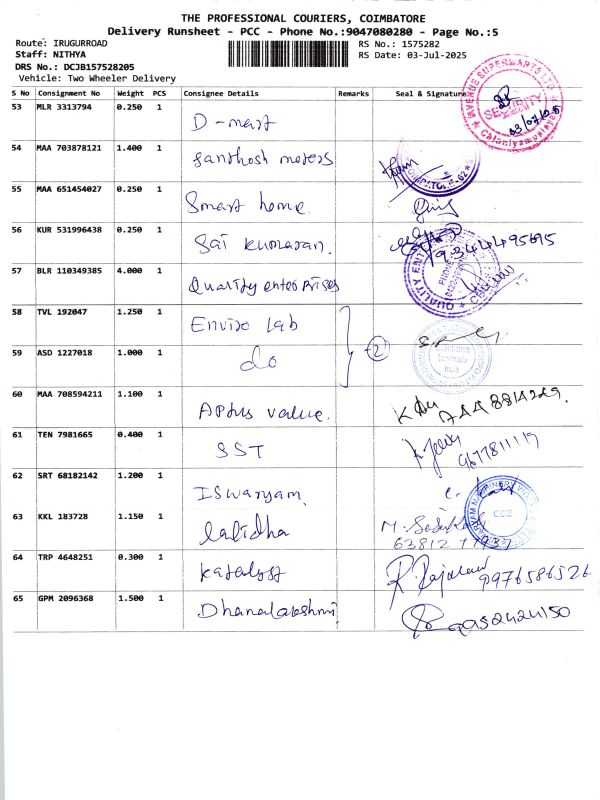 THE PROFESSIONAL COURIERS, COIMBATORE
Delivery Runsheet - PCC - Phone No.:9047080280 - Page No.:5
Route: IRUGURROAD
RS No.: 1575282
Staff: NITHYA
RS Date: 03-Jul-2025
DRS No.: DCJB157528205
Vehicle: Two Wheeler Delivery
S No Consignment No Weight PCS Consignee Details Remarks Seal & Signature
53 MLR 3313794 0.250 1
D-mart
SECURITY
03/07/25
54 MAA 703878121 1.400 1
Santhosh motors
55 MAA 651454027 0.250 1
Smart home.
56 KUR 531996438 0.250 1
Sai kumaran.
9344495695
57 BLR 110349385 4.000 1
Quality enterprises
58 TVL 192047 1.250 1
Enviro Lab
59 ASD 1227018 1.000 1
do
2
60 MAA 708594211 1.100 1
Aptus value.
61 TEN 7981665 0.400 1
SST
9677811119
62 SRT 68182142 1.200 1
ISwaryam
63 KKL 183728 1.150 1
lalidha
64 TRP 4648251 0.300 1
Katalyst
R. Rajaram
9976586526
65 GPM 2096368 1.500 1
Dhanalakshmi
9952424150